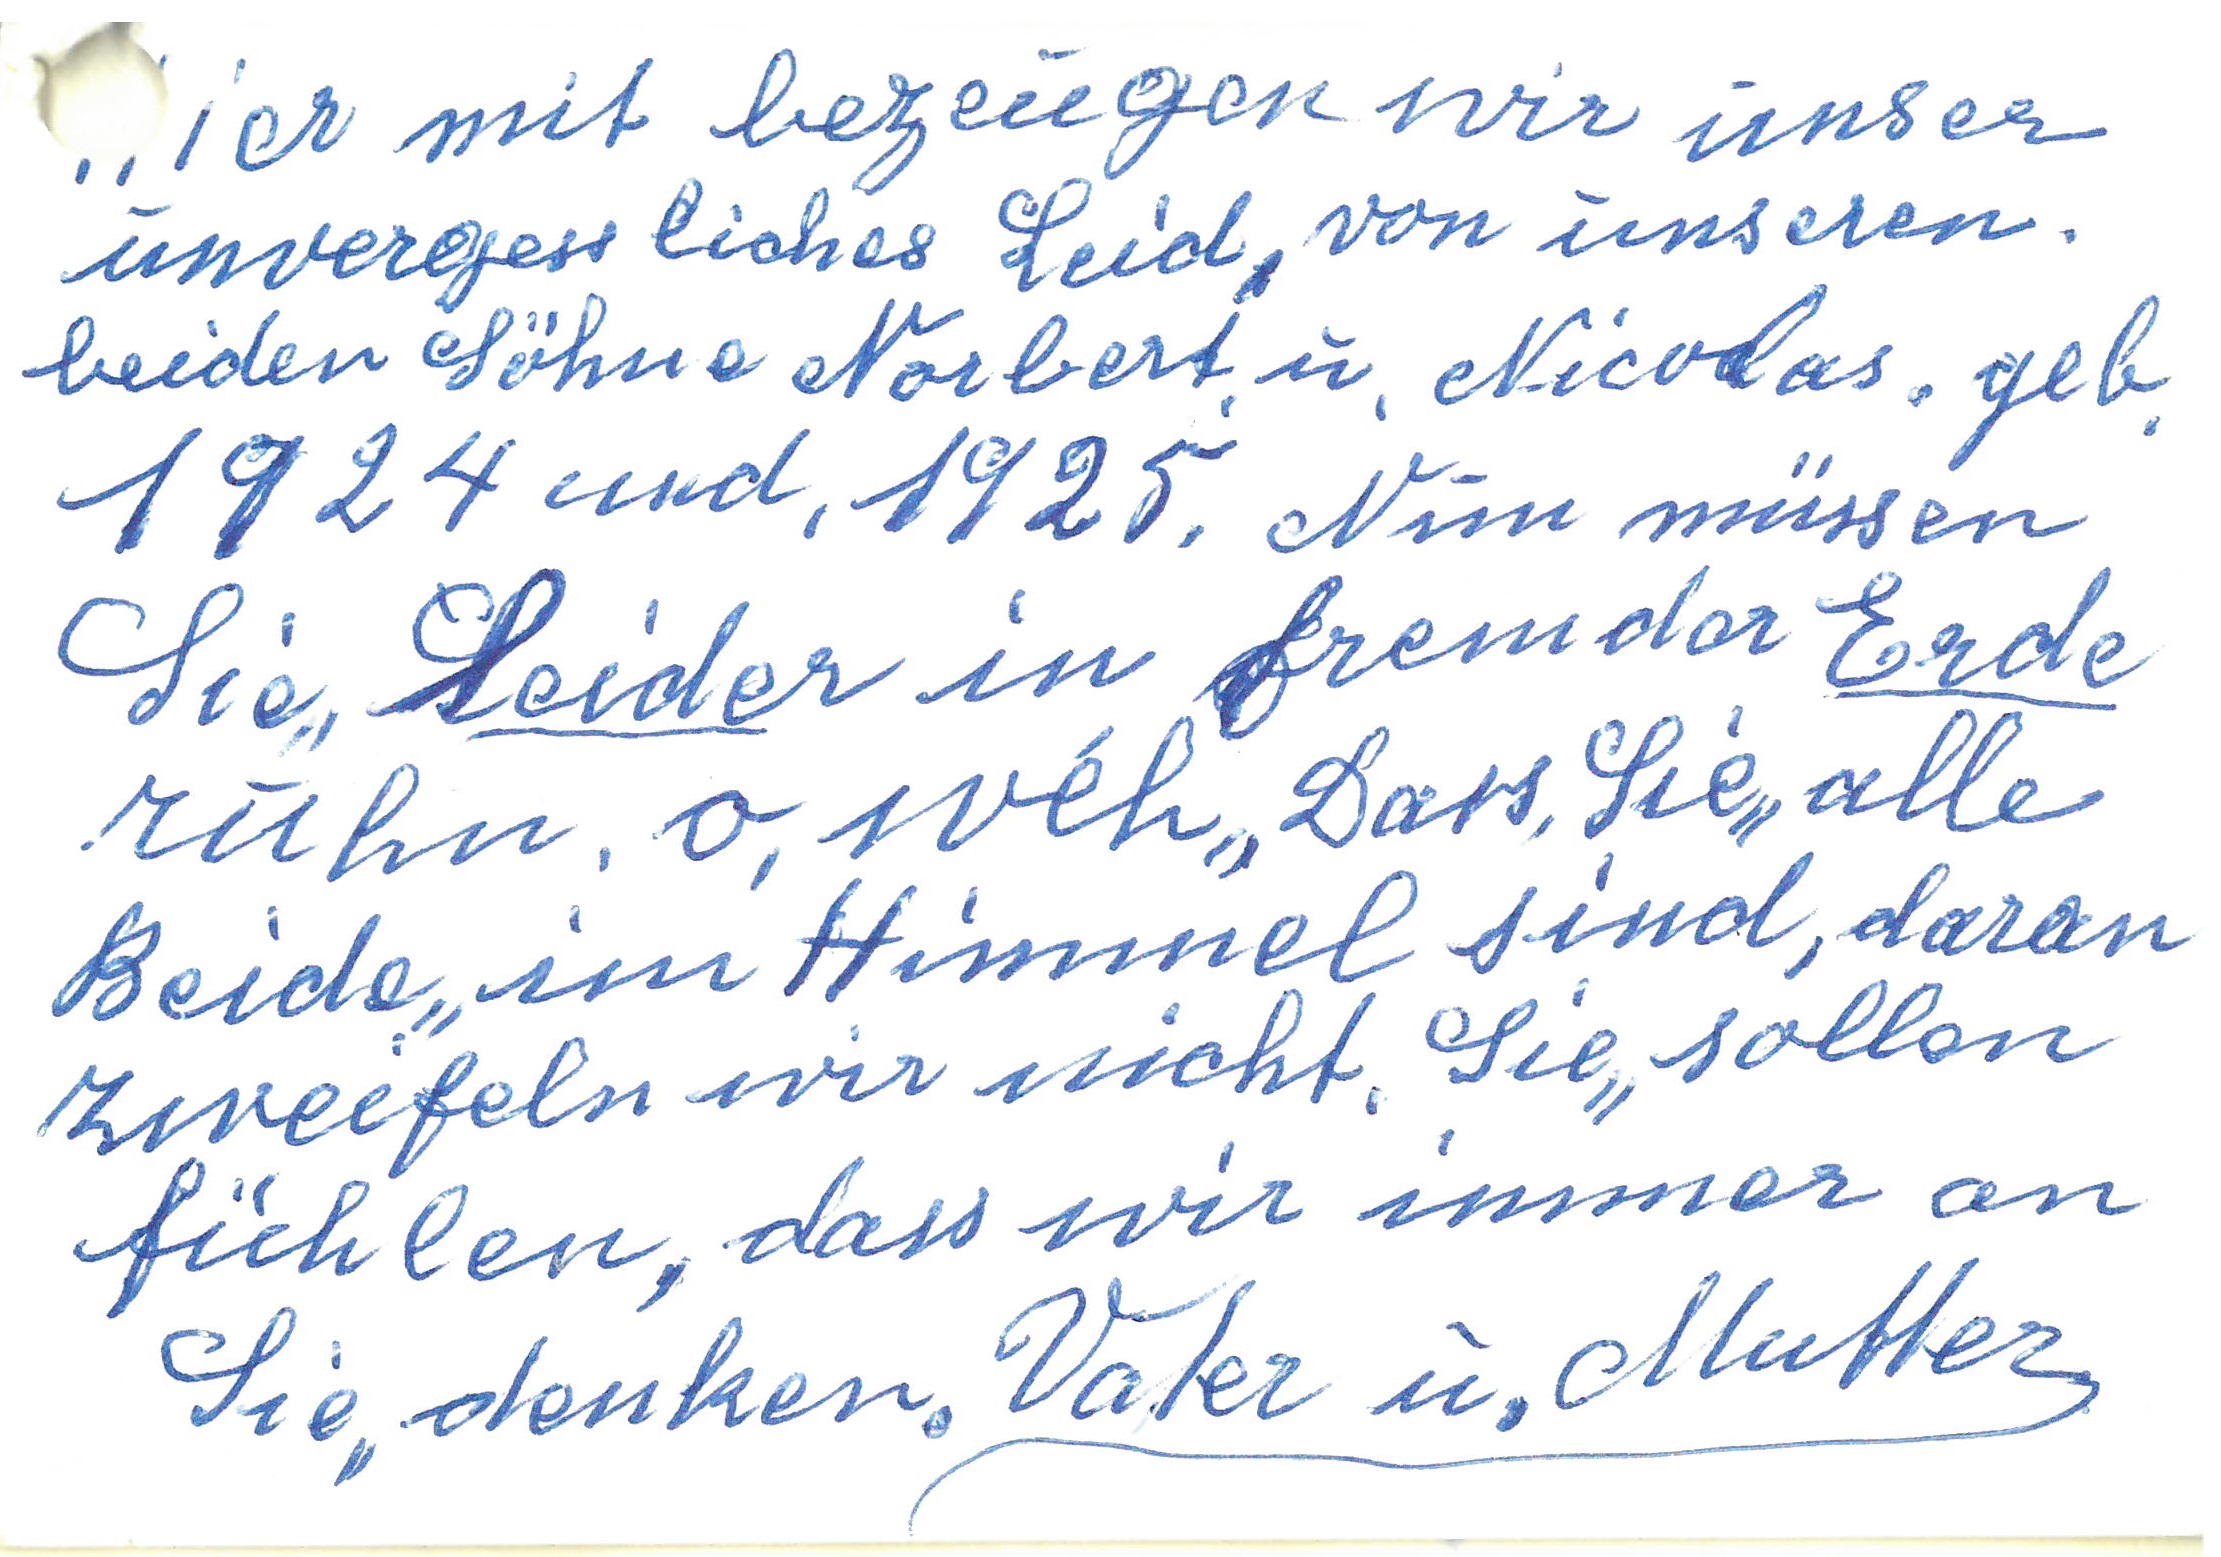 „Hier mit bezeugen wir unser
unvergessliches Leid, von unseren.
beiden Söhne Norbert, u, Nicolas. geb.
1924 und, 1925. Nun müssen
Sie„ Leider in fremder Erde
ruhn, o, wéh„ Dass, Sie„ alle
Beide„ im Himmel sind, daran
zweifeln wir nicht. Sie„ sollen
fühlen, dass wir immer an
Sie„ denken. Vater u. Mutter